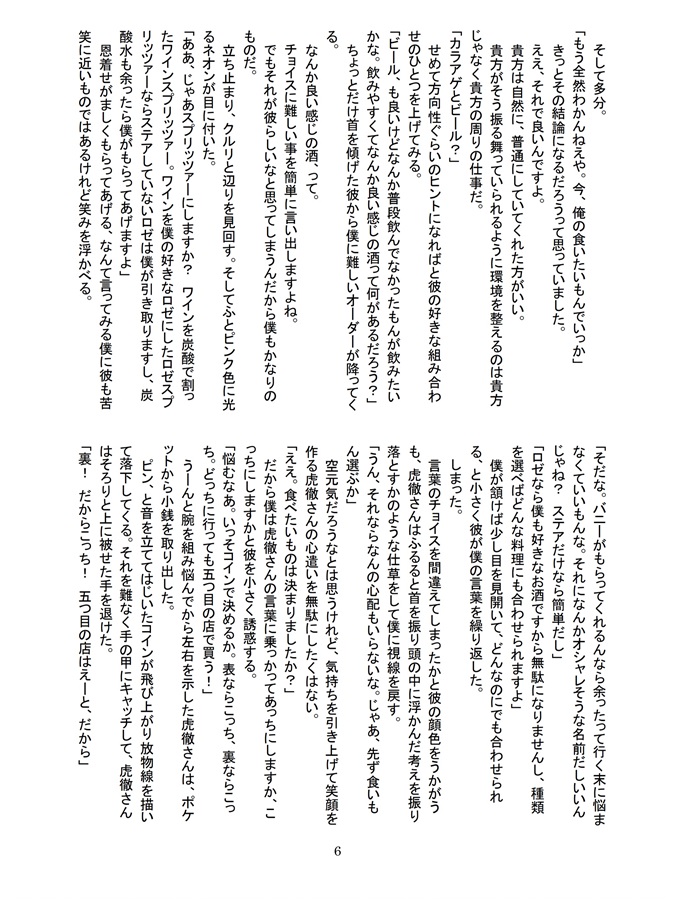 そして多分。
「もう全然わかんねえや。今、俺の食いたいもんでいっか」
　きっとその結論になるだろうって思っていました。
　ええ、それで良いんですよ。
　貴方は自然に、普通にしていてくれた方がいい。
　貴方がそう振る舞っていられるように環境を整えるのは貴方
じゃなく貴方の周りの仕事だ。
「カラアゲとビール？」
　せめて方向性ぐらいのヒントになればと彼の好きな組み合わ
せのひとつを上げてみる。
「ビール、も良いけどなんか普段飲んでなかったもんが飲みたい
かな。飲みやすくてなんか良い感じの酒って何があるだろう？」
　ちょっとだけ首を傾げた彼から僕に難しいオーダーが降ってく
る。
　なんか良い感じの酒、って。
　チョイスに難しい事を簡単に言い出しますよね。
　でもそれが彼らしいなと思ってしまうんだから僕もかなりの
ものだ。
　立ち止まり、クルリと辺りを見回す。そしてふとピンク色に光
るネオンが目に付いた。
「ああ、じゃあスプリッツァーにしますか？　ワインを炭酸で割っ
たワインスプリッツァー。ワインを僕の好きなロゼにしたロゼスプ
リッツァーならステアしていないロゼは僕が引き取りますし、炭
酸水も余ったら僕がもらってあげますよ」
　恩着せがましくもらってあげる、なんて言ってみる僕に彼も苦
笑に近いものではあるけれど笑みを浮かべる。
「そだな。バニーがもらってくれるんなら余ったって行く末に悩ま
なくていいもんな。それになんかオシャレそうな名前だしいいん
じゃね？　ステアだけなら簡単だし」
「ロゼなら僕も好きなお酒ですから無駄になりませんし、種類
を選べばどんな料理にも合わせられますよ」
　僕が頷けば少し目を見開いて、どんなのにでも合わせられ
る、と小さく彼が僕の言葉を繰り返した。
　しまった。
　言葉のチョイスを間違えてしまったかと彼の顔色をうかがう
も、虎徹さんはふるふると首を振り頭の中に浮かんだ考えを振り
落とすかのような仕草をして僕に視線を戻す。
「うん、それならなんの心配もいらないな。じゃあ、先ず食いも
ん選ぶか」
　空元気だろうなとは思うけれど、気持ちを引き上げて笑顔を
作る虎徹さんの心遣いを無駄にしたくはない。
「ええ。食べたいものは決まりましたか？」
　だから僕は虎徹さんの言葉に乗っかってあっちにしますか、こ
っちにしますかと彼を小さく誘惑する。
「悩むなあ。いっそコインで決めるか。表ならこっち、裏ならこっ
ち。どっちに行っても五つ目の店で買う！」
　うーんと腕を組み悩んでから左右を示した虎徹さんは、ポケ
ットから小銭を取り出した。
　ピン、と音を立ててはじいたコインが飛び上がり放物線を描い
て落下してくる。それを難なく手の甲にキャッチして、虎徹さん
はそろりと上に被せた手を退けた。
「裏！　だからこっち！　五つ目の店はえーと、だから」
6